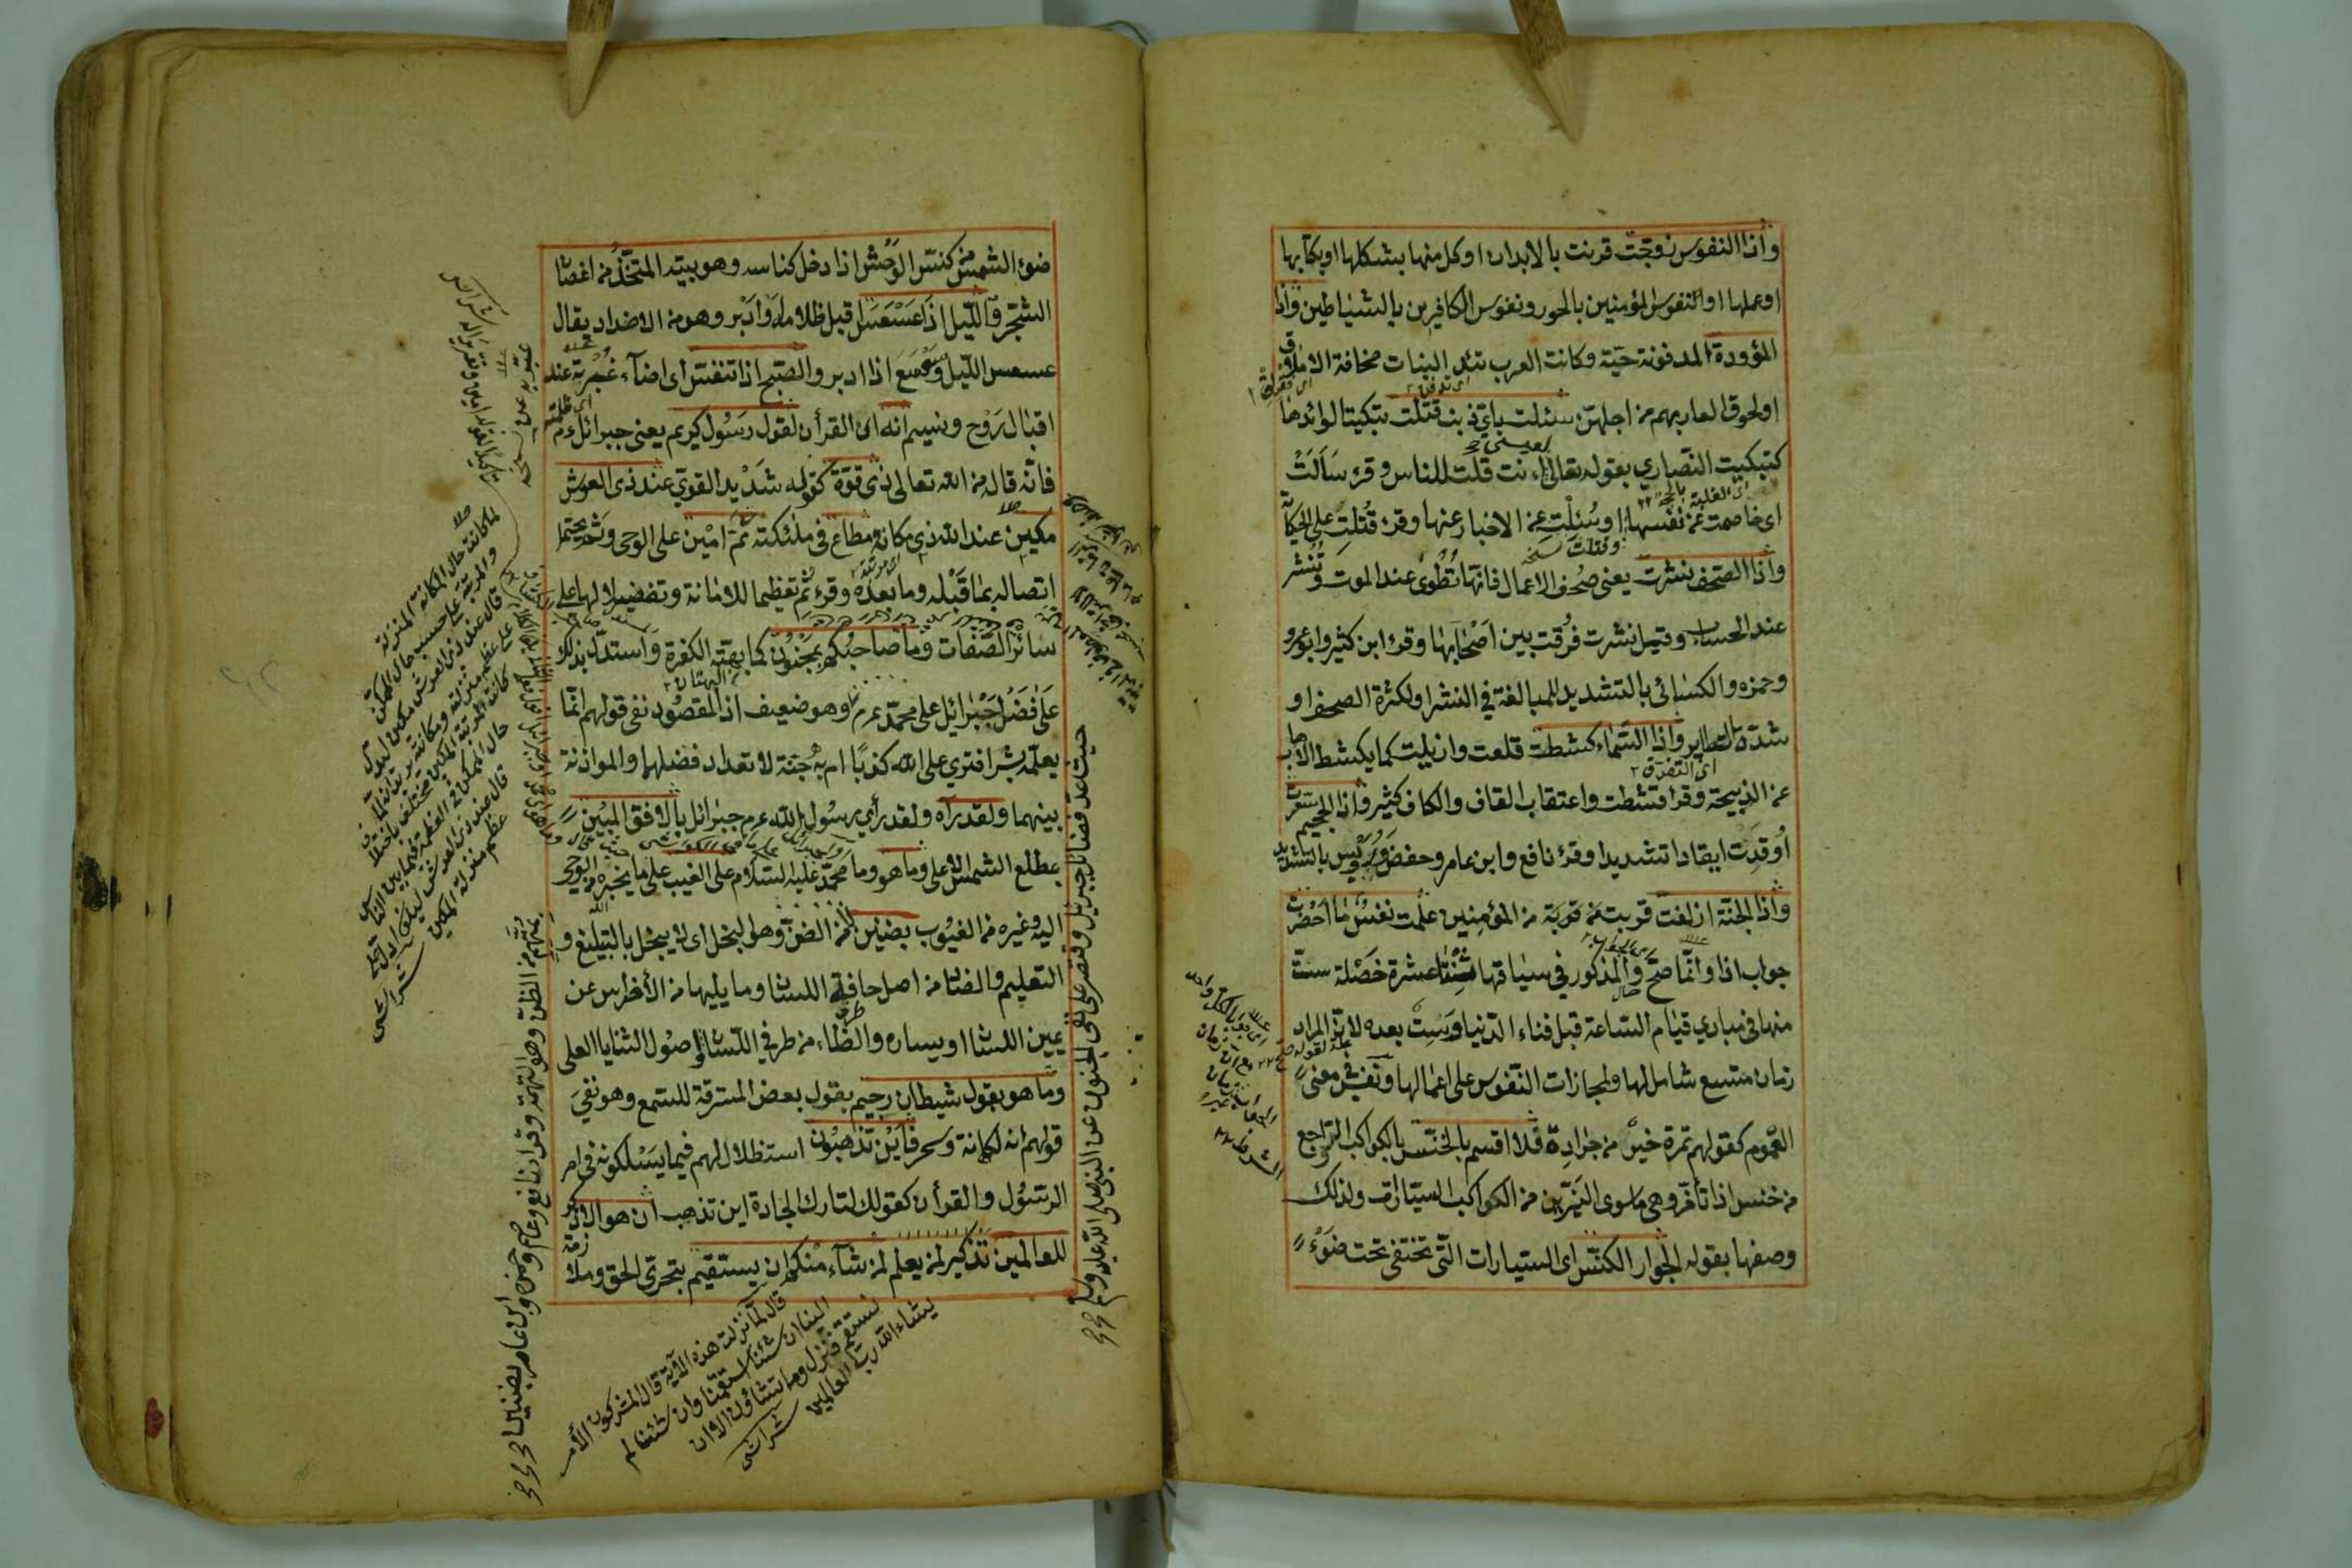 واذا النفوس زوجت قرنت بالابدان او كل منها بشكلها او بكتابها
او عملها او النفوس المؤمنين بالحور ونفوس الكافرين بالشياطين واذا
المؤودة المدفونة حية وكانت العرب تئد البنات مخافة الاملاق
او لحوق العار بهم من اجلهن سئلت باي ذنب قتلت تبكيتا لوائدها
كتبكيت النصاري بقوله تعالى ءانت قلت للناس وقرء سألت
اى خاصمت عن نفسها او سئلت عن الاخبار عنها وقرء قتلت على الحكاية
واذا الصحف نشرت يعنى صحف الاعمال فانها تطوى عند الموت وتنشر
عند الحساب وقيل نشرت فرقت بين اصحابها وقرء ابن كثير وابو عمرو
وحمزه والكسائى بالتشديد للمبالغة في النشر او لكثرة الصحف او
شدة التطاير واذا السماء كشطت قلعت وازيلت كما يكشط الاهاب
عن الذبيحة وقرء قشطت واعتقاب القاف والكاف كثير واذا الجحيم سعرت
أوقدت ايقادا شديدا وقرء نافع وابن عامر وحفص ورويس بالتشديد
واذا الجنة ازلفت قربت من المؤمنين علمت نفس ما احضرت
جواب اذا وانما صح والمذكور في سياقها ثنتا عشرة خصلة ست
منها في مبادي قيام الساعة قبل فناء الدنيا وست بعده لان المراد
زمان متسع شامل لها ولمجازات النفوس على اعمالها ونفس فى معنى
العموم كقولهم تمرة خير من جرادة فلا اقسم بالخنس بالكواكب الرواجع
من خنس اذا تأخر وهى ماسوى النيرين من الكواكب السيارات ولذلك
وصفها بقوله الجوار الكنس اى السيارات التى تختفى تحت ضوء
ضوء الشمس من كنس الوحش اذا دخل كناسه وهو بيته المتخذ من اغصان
الشجر والليل اذا عسعس اقبل ظلامه او ادبر وهو من الاضداد يقال
عسعس الليل وسعسع اذا ادبر والصبح اذا تنفس اى اضاء غبرته عند
اقبال روح ونسيم انه اى القرأن لقول رسول كريم يعنى جبرائل عم
فانه قاله من الله تعالى ذى قوة كقوله شديد القوي عند ذى العرش
مكين عند الله ذى مكانة مطاع فى ملئكته ثم امين على الوحى وثم يحتمل
اتصاله بما قبله وما بعده وقرء ثم تعظيما للامانة وتفضيلا لها على
سائر الصفات وما صاحبكم بمجنون كما بهته الكفرة واستدل بذلك
على فضل جبرائيل على محمد عم وهو ضعيف اذ المقصود نفى قولهم انما
يعلمه بشر افترى على الله كذبا ام به جنة لا تعداد فضلهما والموازنة
بينهما ولقد رآه ولقد رأى رسول الله عم جبرائل بالافق المبين
بمطلع الشمس الاعلى وما هو وما محمد عليه السلام على الغيب على ما يخبره من الوحى
اليه وغيره من الغيوب بضنين من الضن وهو البخل اى لا يبخل بالتبليغ و
التعليم والضاد من اصل حافة اللسان وما يليها من الأضراس عن
يمين اللسان او يساره والظاء من طرف اللسان واصول الثنايا العلى
وما هو بقول شيطان رجيم بقول بعض المسترقة للسمع وهو نفي
قولهم انه لكهانة وسحر فأين تذهبون استضلال لهم فيما يسلكونه فى امر
الرسول والقرأن كقولك لتارك الجادة اين تذهب ان هو الا ذكر
للعالمين تذكير لمن يعلم لمن شاء منكم ان يستقيم بتحرى الحق وملا
زمة
حيث عد فضائل جبريل واقتصر على نفى الجنون عن النبى صلى الله عليه وسلم
قال لما نزلت هذه الآية قال المشركون الأمر
الينا ان شئنا استقمنا وان شئنا لم
نستقم فنزل وما تشاؤن الا ان
يشاء الله رب العالمين